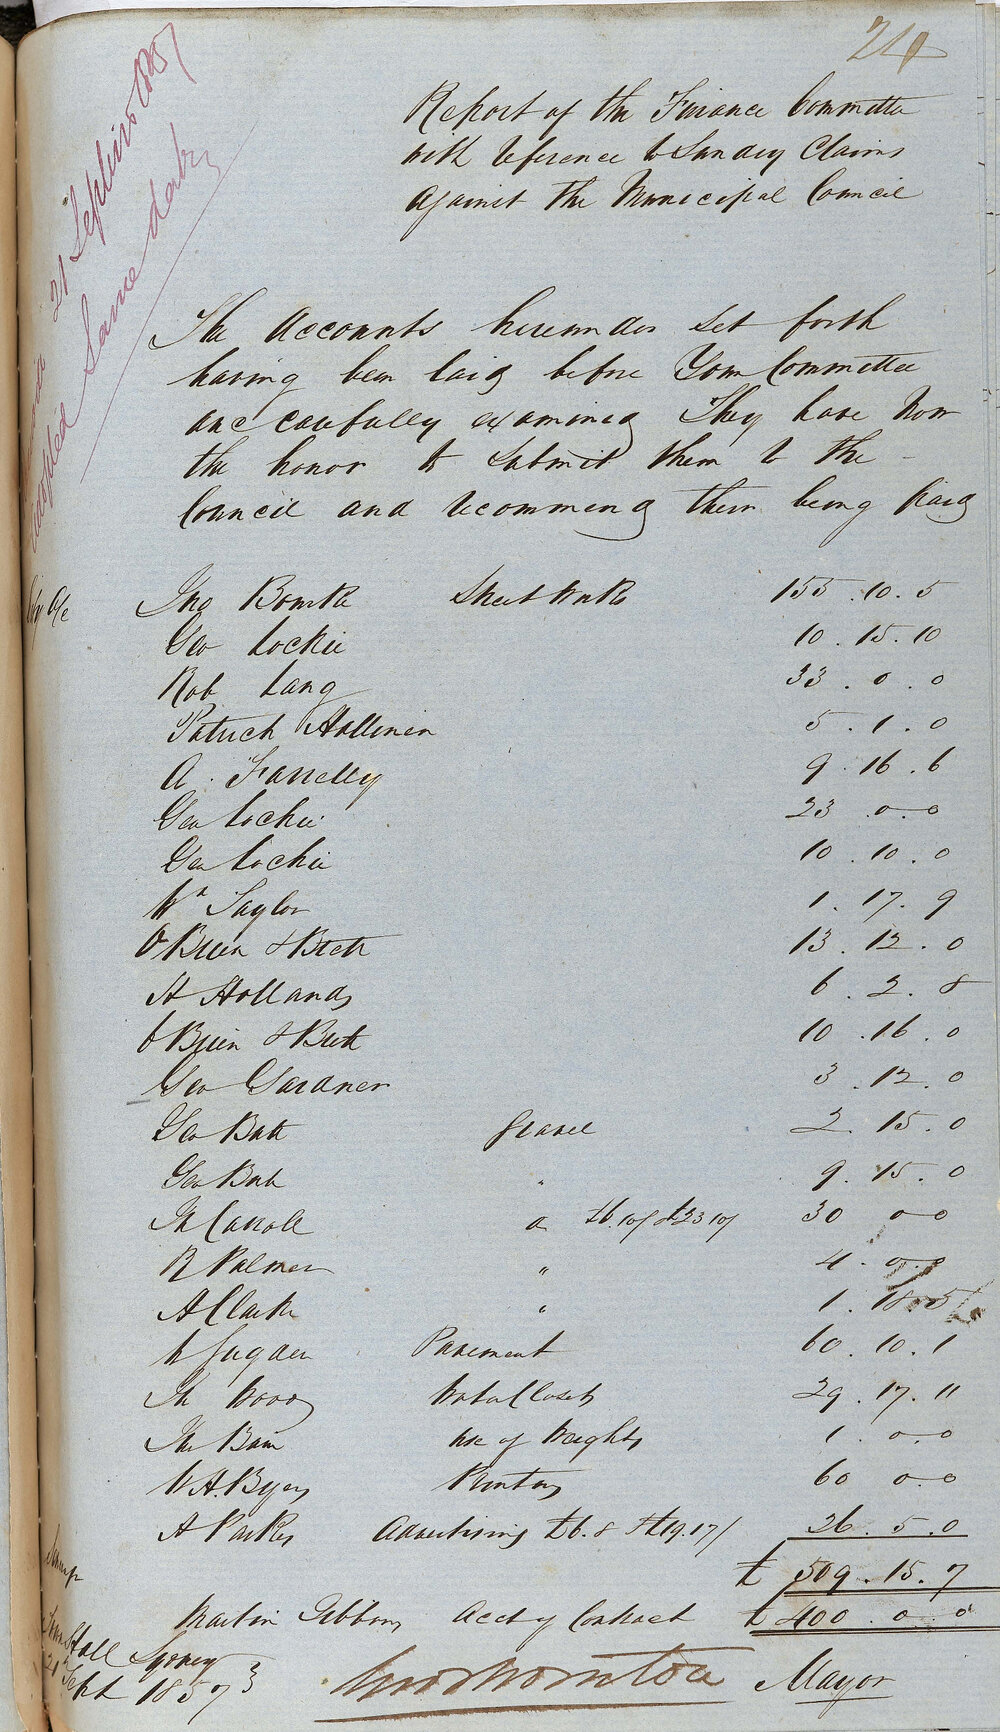 24
21 September 1857
Same day
Report of the Finance Committee
with reference to Sundry Claims
against the Municipal Council
The Accounts hereunder set forth
having been laid before Your Committee
and carefully examined They have now
the honor to submit them to the
Council and recommend them being paid
City a/c Jno Bourke Street Works 155 . 10 . 5
Geo Lockie 10 . 15 . 10
Rob Lang 33 . 0 . 0
Patrick Hallinan 5 . 1 . 0
A. Farrelly 9 . 16 . 6
Geo Lockie 23 . 0 . 0
Geo Lockie 10 . 10 . 0
Wm Taylor 1 . 17 . 9
O'Brien & Butt 13 . 12 . 0
H Hollands 6 . 2 . 8
O'Brien & Butt 10 . 16 . 0
Geo Gardner 3 . 12 . 0
Geo Butt Gravel 2 . 15 . 0
Geo Butt " 9 . 15 . 0
Carroll £6.10/ & £23 10/ 30 0 0
R Palmer " 4 . 0 . 0
A Clarke " 1 . 18 . 5
Pavement 60 . 10 . 1
Wood Water Closets 29 . 17 . 11
Bain use of Weights 1 . 0 . 0
W. A. Byers Printing 60 0 0
H Parkes Advertising £6.8 & £19.17/ 26 . 5 . 0
£ 509 . 15 . 7
Martin Gibbons Acct of Contract £ 400 . 0 . 0
Town Hall Sydney
21 Sept 1857
Geo Thornton Mayor